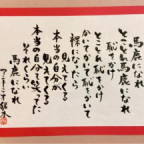 馬鹿になれ
とことん馬鹿になれ
恥をかけ
とことん恥をかけ
かいてかいて恥かいて
裸になったら
見えてくる
本当の自分が
見えてくる
本当の自分も笑ってた
それくらい
馬鹿になれ